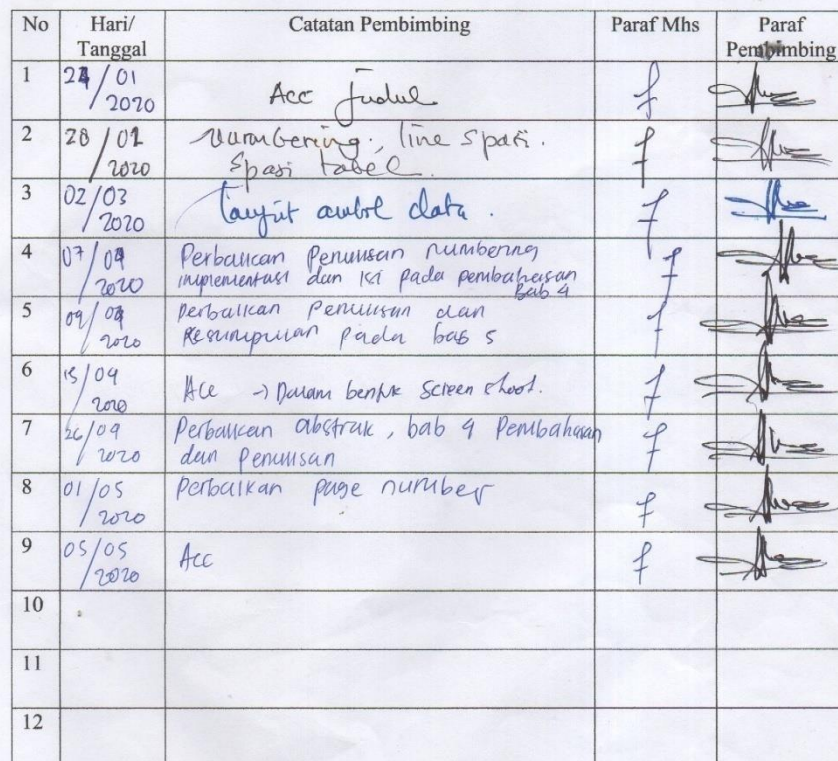 No Hari/ Catatan Pembimbing Paraf Mhs Paraf
Tanggal Pembimbing
1 24/01
2020 Acc judul
2 28/01 Numbering, line spasi.
2020 Spasi tabel.
3 02/03
2020 Lanjut ambil data.
4 07/04 Perbaikan Penulisan numbering
2020 implementasi dan isi pada pembahasan
Bab 4
5 09/04 Perbaikan Penulisan dan
2020 Kesimpulan pada bab 5
6 15/04
2020 Acc -> Dalam bentuk Screen shoot.
7 26/04 Perbaikan abstrak, bab 4 Pembahasan
2020 dan Penulisan
8 01/05 Perbaikan page number
2020
9 05/05 Acc
2020
10
11
12